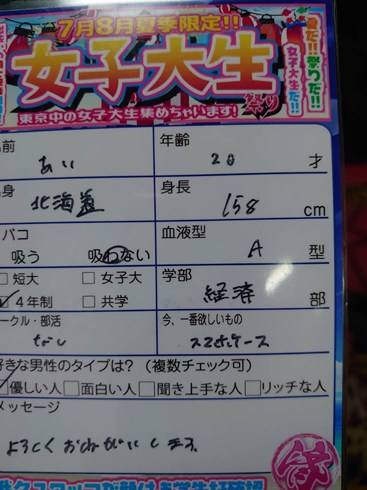 7月8月夏季限定!!
夏だ!!祭りだ!!
女子大生だ!!
女子大生
祭り
東京中の女子大生集めちゃいます!
名前 あい
年齢 20 才
出身 北海道
身長 158 cm
タバコ 吸う 吸わない
血液型 A 型
□短大 □女子大
☑4年制 □共学
学部 経済 部
サークル・部活 なし
今、一番欲しいもの スーツケース
好きな男性のタイプは?(複数チェック可)
☑優しい人 □面白い人 □聞き上手な人 □リッチな人
メッセージ
よろしくおねがいします。